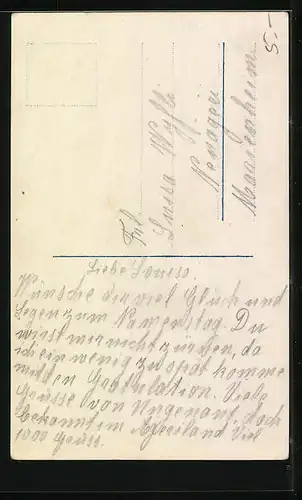 5.-
Frl.
Luisa Wyss
Marienheim
Liebe Louise.
Wünsche dir viel Glück und
Segen zum Namenstag. Du
wirst mir nicht zürnen, da
ich ein wenig zu spät komme
mit den Gratulation. Viele
Grüsse von Ungenant, doch
bekannt im Viel
1000 Gruss.